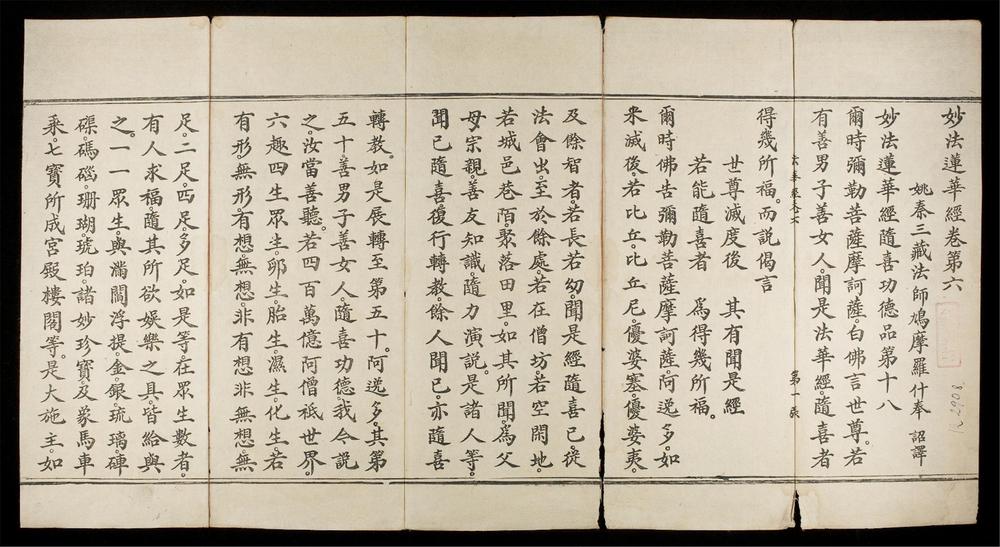 妙法蓮華經卷第六
姚秦三藏法師鳩摩羅什奉 詔譯
妙法蓮華經隨喜功德品第十八
爾時彌勒菩薩摩訶薩。白佛言世尊。若
有善男子善女人。聞是法華經。隨喜者
第一張
得幾所福。而說偈言
世尊滅度後 其有聞是經
若能隨喜者 為得幾所福。
爾時佛告彌勒菩薩摩訶薩。阿逸多。如
來滅後。若比丘。比丘尼。優婆塞。優婆夷。
及餘智者。若長若幼。聞是經隨喜已從
法會出。至於餘處。若在僧坊。若空閑地。
若城邑巷陌聚落田里。如其所聞。為父
母宗親。善友知識。隨力演說。是諸人等。
聞已隨喜。復行轉教。餘人聞已。亦隨喜
轉教。如是展轉至第五十。阿逸多。其第
五十善男子善女人。隨喜功德。我今說
之。汝當善聽。若四百萬億阿僧祇世界
六趣四生眾生。卵生。胎生。濕生。化生。若
有形。無形。有想。無想。非有想非無想。無
足。二足。四足。多足。如是等。在眾生數者。
有人求福。隨其所欲娛樂之具。皆給與
之。一一眾生。與滿閻浮提。金。銀。琉璃。硨
磲。碼碯。珊瑚。琥珀。諸妙珍寶。及象馬車
乘。七寶所成宮殿樓閣等。是大施主。如